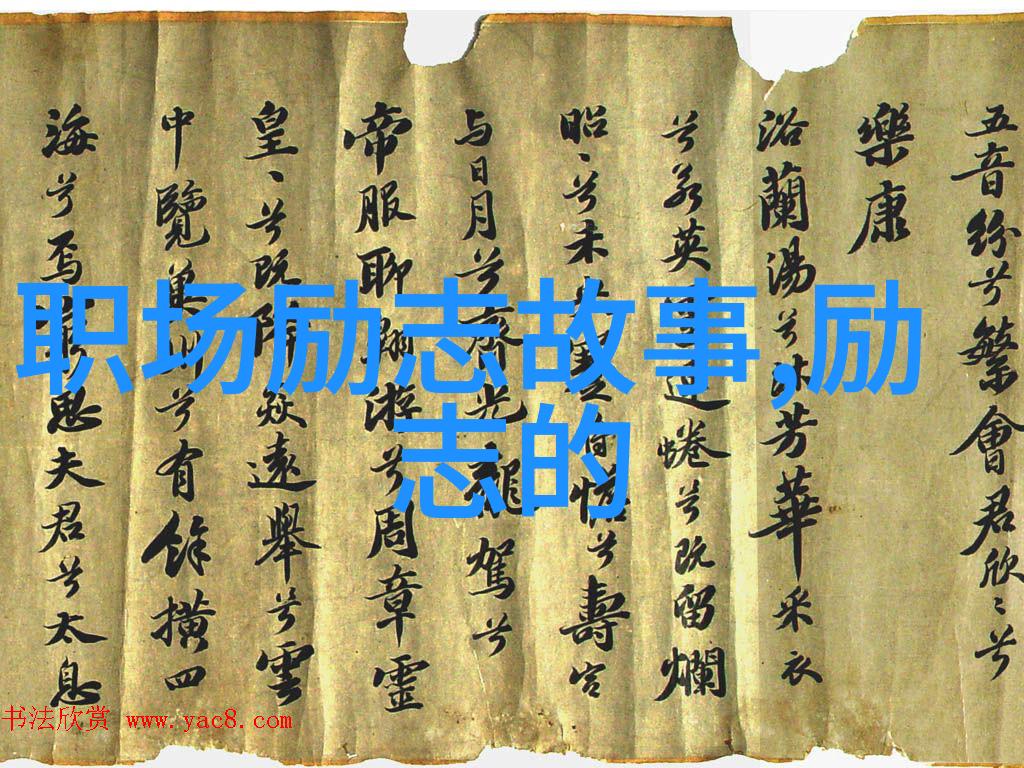 五音紛兮繁會君欣〻兮
樂康
浴蘭湯兮沐芳華采衣
兮若英連蜷兮既留爛
昭〻兮未央憺兮壽宮
与日月兮齊光龍駕兮
帝服聊翱游兮周章靈
皇〻兮既降猋遠舉兮雲
中覽冀州兮有餘橫四
海兮焉窮思夫君兮太息
职场励志故事,励
志的
书法欣赏 www.yac8.com